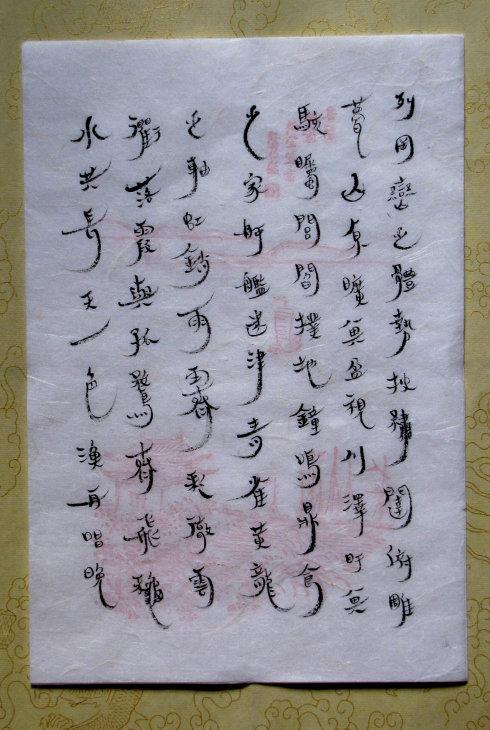 列岡巒之體勢披繡闥俯雕
甍山原曠其盈視川澤盱其
駭矚閭閻撲地鐘鳴鼎食
之家舸艦迷津青雀黃龍
之軸虹銷雨霽彩徹雲
衢落霞與孤鶩齊飛龝
水共長天一色漁舟唱晚